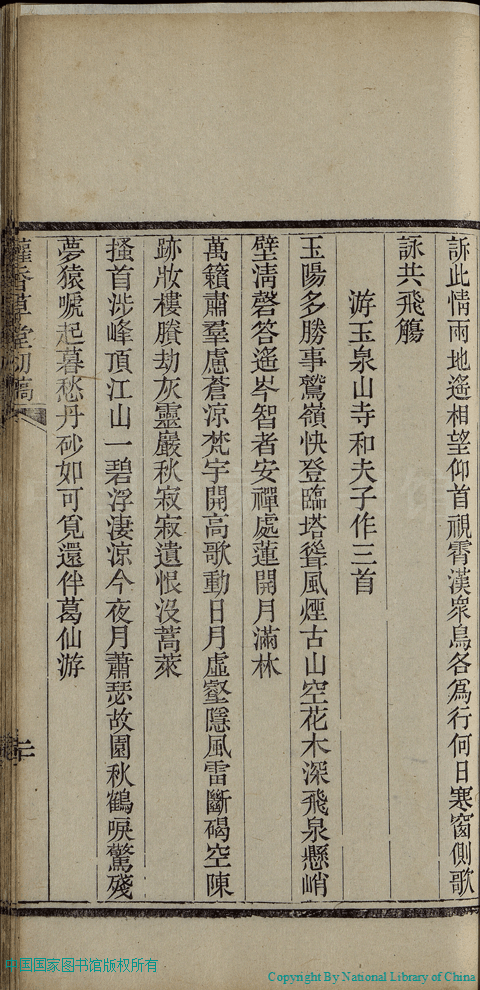 訴此情兩地遙相望仰首視霄漢衆鳥各爲行何日寒窗側歌
詠共飛觴
游玉泉山寺和夫子作三首
玉陽多勝事鷲嶺快登臨塔聳風煙古山空花木深飛泉懸峭
壁淸磬答遙岑智者安禪處蓮開月滿林
萬籟肅羣慮蒼涼梵宇開高歌動日月虛壑隱風雷斷碣空陳
跡妝樓賸劫灰靈巖秋寂寂遺恨沒蒿萊
搔首涉峰頂江山一碧浮淒涼今夜月蕭瑟故園秋鶴唳驚殘
夢猿嗁起暮愁丹砂如可覓還伴葛仙游
香草堂初稿
二
中国国家图书馆版权所有
Copyright By National Library of China